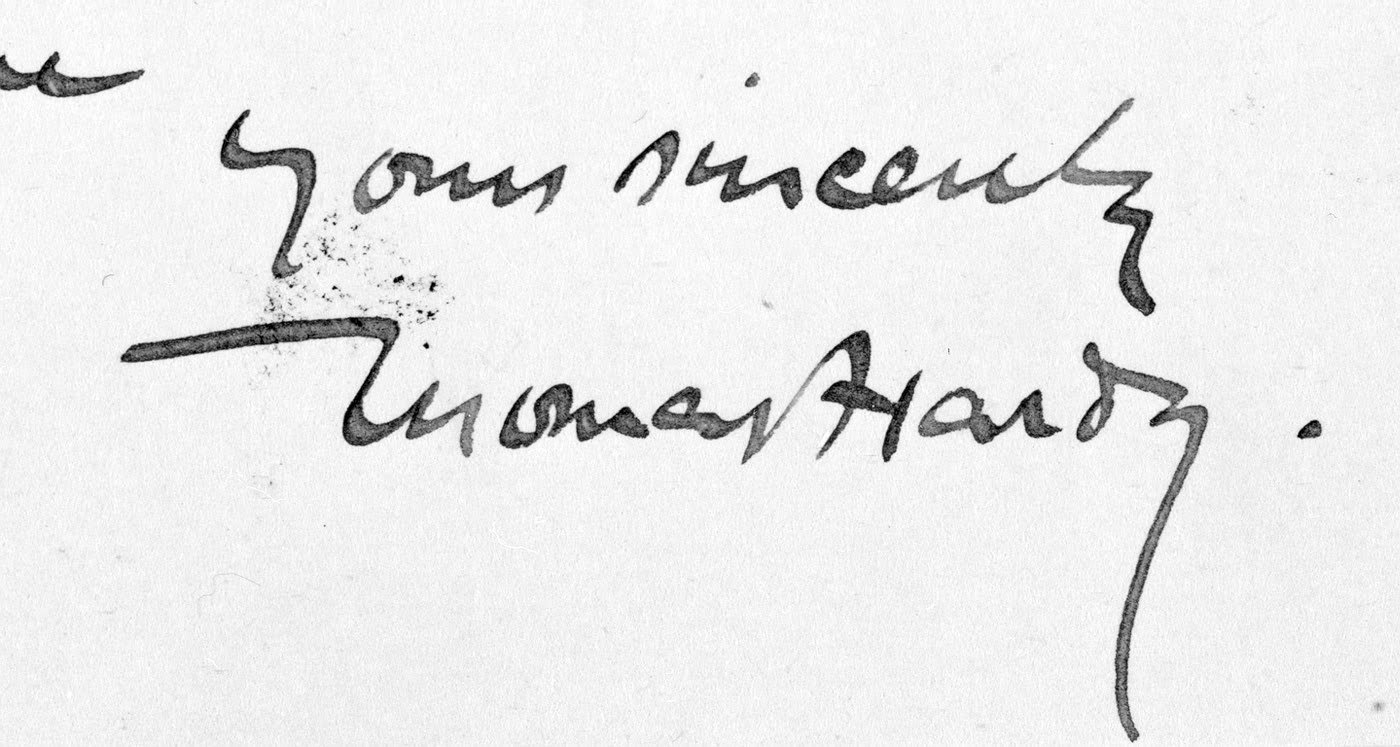 Yours sincerely
Thomas Hardy.